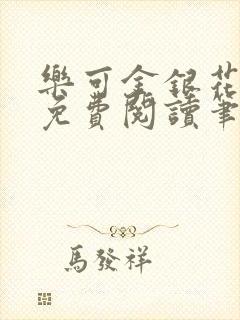 樂可金銀花
免費閱讀筆
馬發祥